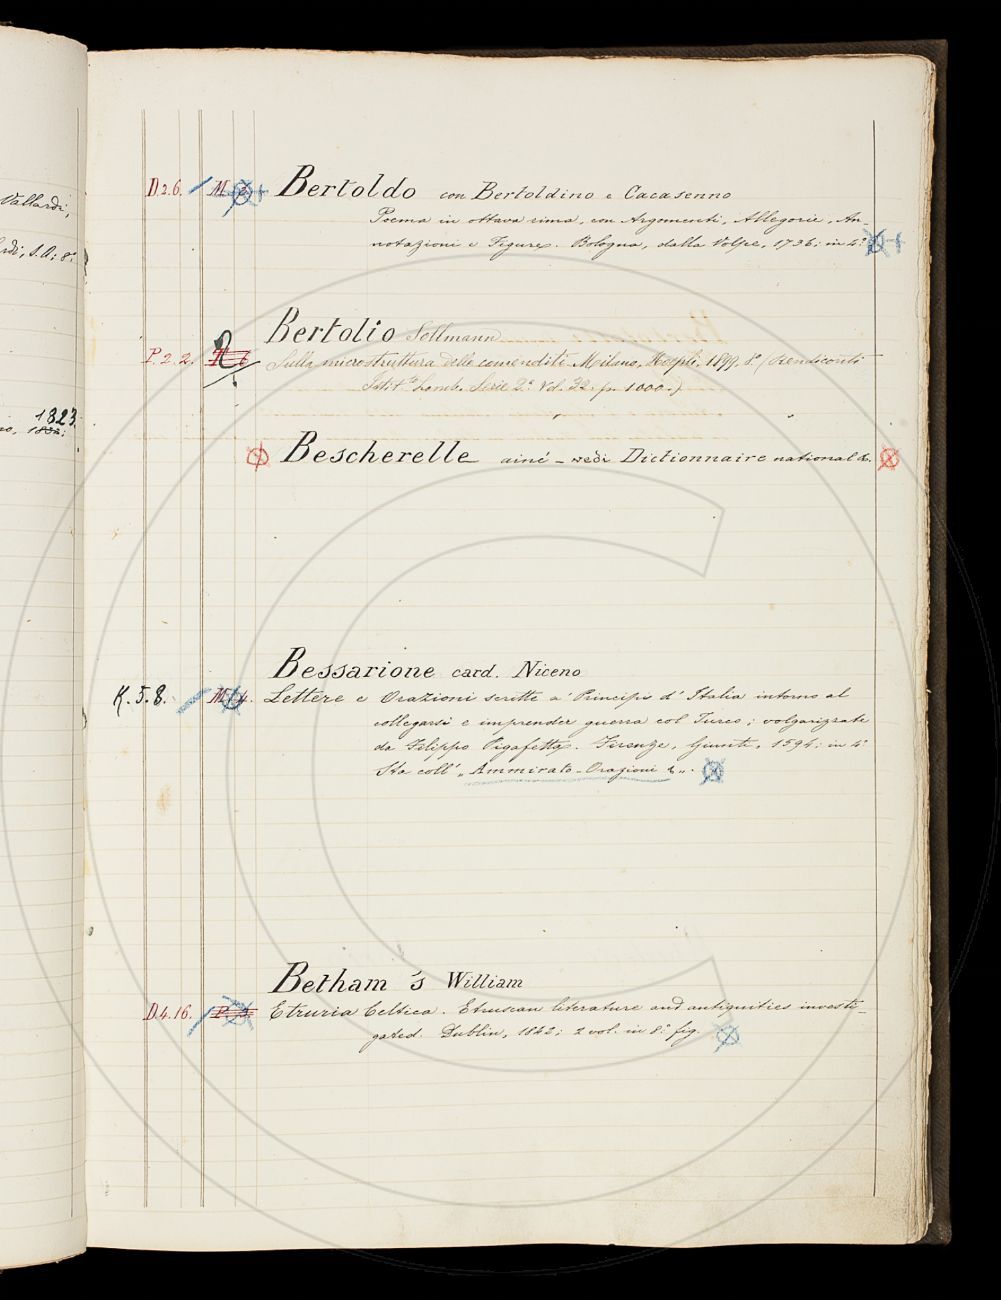 Vallardi,
S.A; 8º
1823.
D.2.6. M. Bertoldo con Bertoldino e Cacasenno
Poema in ottava rima, con Argomenti, Allegorie, An-
notazioni e Figure. Bologna, dalla Volpe, 1736; in 4º
Bertolio Sollmann
P.2.2. Sulla microstruttura delle Milano, Hoepli, 1899, 8º (Rendiconti
Istitº Lomb. Serie 2ª Vol. 32. p. 1000.)
Bescherelle ainé - vedi Dictionnaire national &.
Bessarione card. Niceno
K.5.8. M. 4. Lettere e Orazioni scritte a' Principi d'Italia intorno al
collegarsi e imprender guerra col Turco; volgarizzate
da Filippo Pigafetta. Firenze, Giunti, 1594; in 4º
Sta coll' „Ammirato - Orazioni &„.
Betham 's William
D.4.16. Etruria Celtica. Etruscan literature and antiquities investi-
gated. Dublin, 1842; 2 vol. in 8º fig.